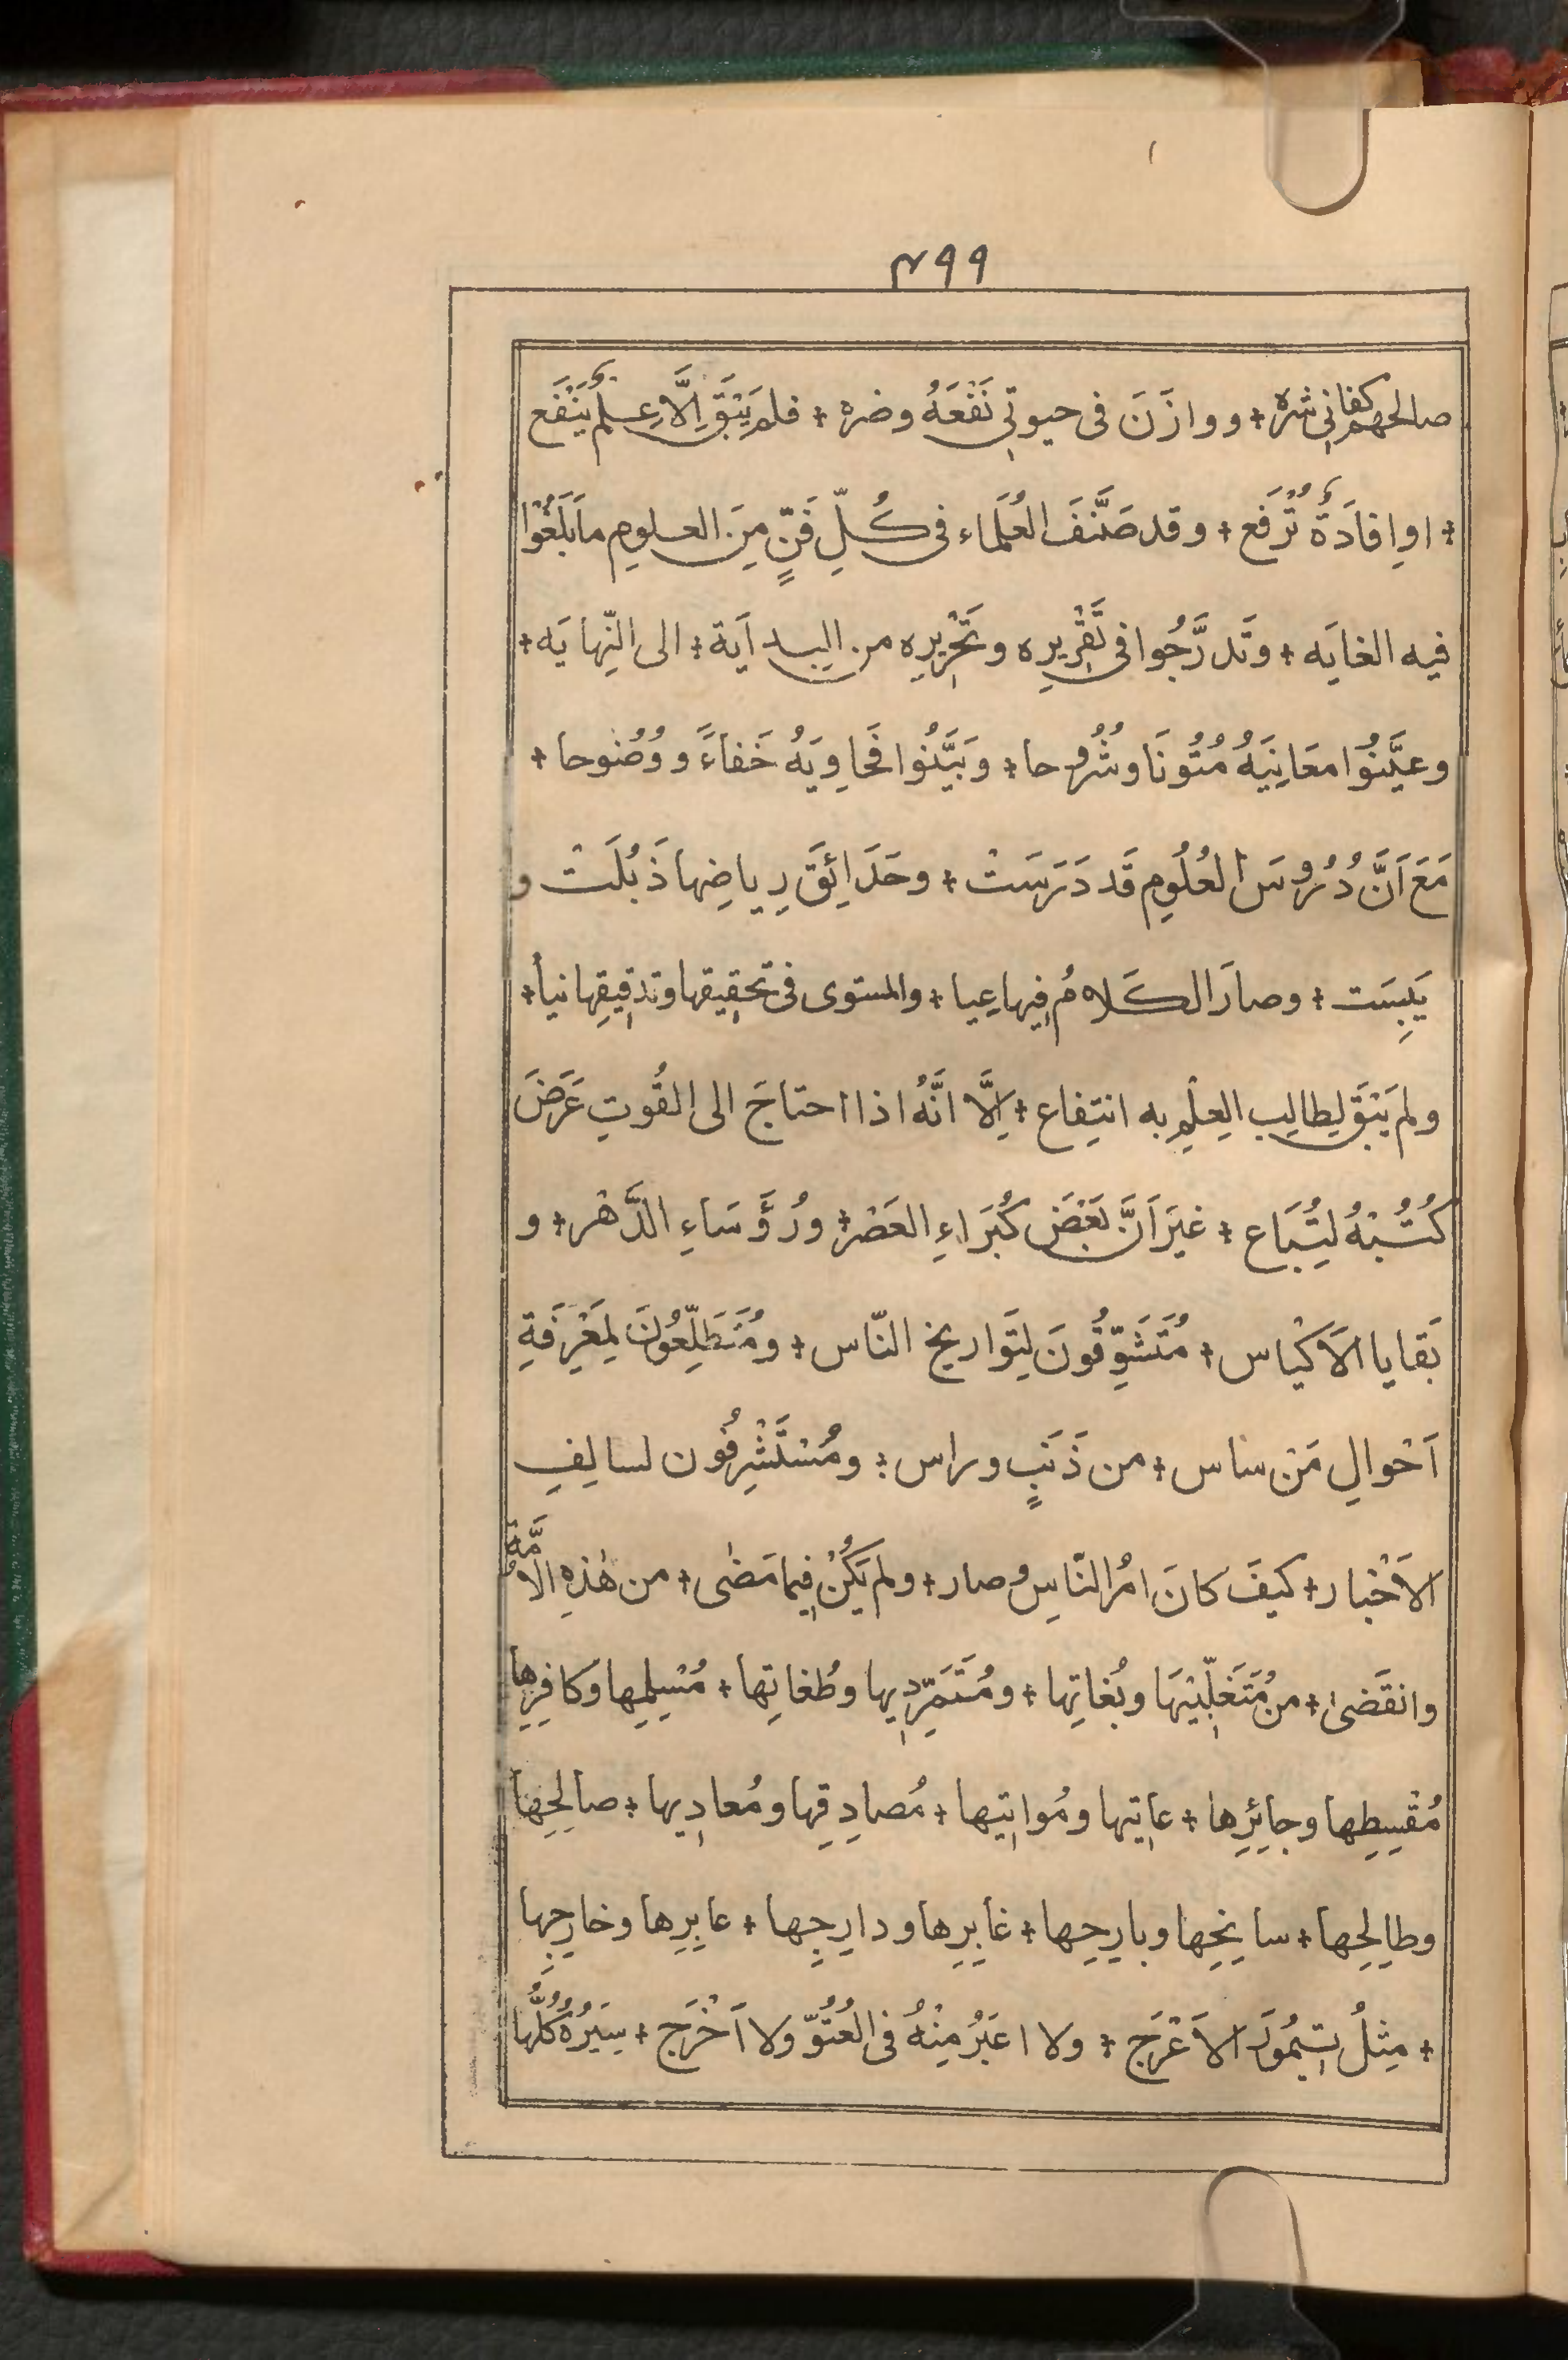 ٤٩٩
صالحهم كفانى شره ÷ ووازَنَ فى حيوتِى نَفْعَهُ وضره ÷ فلم يَبْقَ اِلَّا عِلمٌ يَنْفَع
÷ او اِفادَةٌ تُرْفَع ÷ وقد صَنَّفَ العُلَماء فى كُلِّ فَنٍّ مِنَ العلوم ما بَلَغُوْا
فيه الغايَه ÷ وتَدرَّجُوا فى تَقْرِيرِه وتَحْرِيرِه من البدايَة ÷ الى النِّهايَه ÷
وعيَّنُوْا معَانِيَهُ مُتُونًا وشُرُوحا ÷ وبَيَّنُوا فَحَاوِيَهُ خَفاءً ووُضُوحا ÷
مَعَ اَنَّ دُرُوسَ العُلُوم قَد دَرَسَتْ ÷ وحَدَائِقَ رِياضِها ذَبُلَتْ و
يَبِسَت ÷ وصارَ الكَلامُ فِيها عِيا ÷ والمستوى فى تحقِيقها وتدقِيقِها نيأ ÷
ولم يَبْقَ لِطالِب العِلْمِ به انتِفاع ÷ اِلَّا انَّهُ اذا احتاجَ الى القُوتِ عَرَضَ
كُتُبْهُ لِتُبَاع ÷ غيرَ اَنَّ بَعْضَ كُبَرَاءِ العَصْر ÷ ورُؤَسَاءِ الدَّهْر ÷ و
بَقايا الاَكْياس ÷ مُتَشَوِّقُونَ لِتَواريخ النّاس ÷ ومُتَطَلِّعُونَ لِمَعْرِفَةِ
اَحْوالِ مَنْ ساس ÷ من ذَنَبٍ وراس ÷ ومُسْتَشْرِفُون لسالِفِ
الاَخْبار ÷ كيفَ كانَ امرُ النّاسِ وصار ÷ ولم يَكُنْ فِيما مَضٰى ÷ من هٰذِهِ الاُمَّة
وانقَضىٰ ÷ من مُتَغَلِّبِيْهَا وبُغاتِها ÷ ومُتَمَرِّدِيها وطُغاتِها ÷ مُسْلِمِها وكافِرِها
مُقْسِطِها وجائِرِها ÷ عاتِيها ومُواتِيها ÷ مُصادِقِها ومُعادِيها ÷ صالِحِها
وطالِحِها ÷ سانِحِها وبارِحِها ÷ غابِرِها ودارِجِها ÷ عابِرِها وخارِجِها
÷ مِثلُ تِيمُورَ الاَعْرَج ÷ ولا اعبَرُ مِنْهُ فى العُتُوّ ولا اَخْرَج ÷ سِيَرُهُ كُلُّها